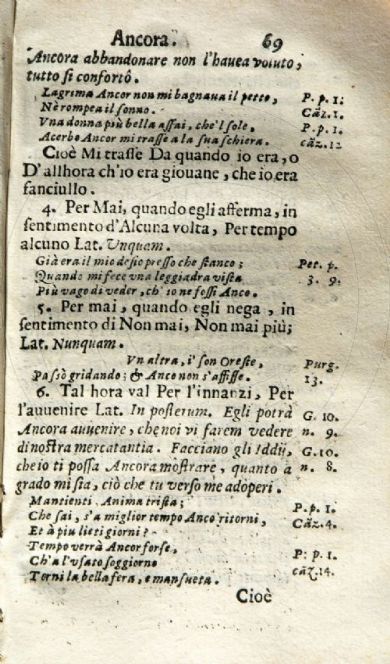 Ancora. 69
Ancora abbandonare non l'hauea voluto,
tutto si confortò.
Lagrima Ancor non mi bagnaua il petto, P. p. 1.
Nè rompea il sonno. Cāz. 1.
Vna donna più bella assai, che'l sole, P. p. 1.
Acerbo Ancor mi trasse a la sua schiera. cāz. 12
Cioè Mi trasse Da quando io era, o
D'allhora ch'io era giouane, che io era
fanciullo.
4. Per Mai, quando egli afferma, in
sentimento d'Alcuna volta, Per tempo
alcuno Lat. Unquam.
Già era il mio desio presso che stanco; Pet. p.
Quando mi fece vna leggiadra vista 3. 9.
Più vago di veder, ch'io ne fossi Anco.
5. Per mai, quando egli nega, in
sentimento di Non mai, Non mai più;
Lat. Nunquam.
Vn altra, i' son Oreste, Purg.
Passò gridando; & Anco non s'affisse. 13.
6. Tal hora val Per l'innanzi, Per
l'auuenire Lat. In posterum. Egli potrà G. 10.
Ancora auuenire, che noi vi farem vedere n. 9.
di nostra mercatantia. Facciano gli Iddij, G. 10.
che io ti possa Ancora mostrare, quanto a n. 8.
grado mi sia, ciò che tu verso me adoperi.
Mantienti, Anima trista; P. p. 1.
Che sai, s'a miglior tempo Anco ritorni, Cāz. 4.
Et à piu lieti giorni?
Tempo verrà Ancor forse, P: p. 1.
Ch'a l'vsato soggiorno cāz. 14.
Torni la bella fera, e mansueta.
Cioè